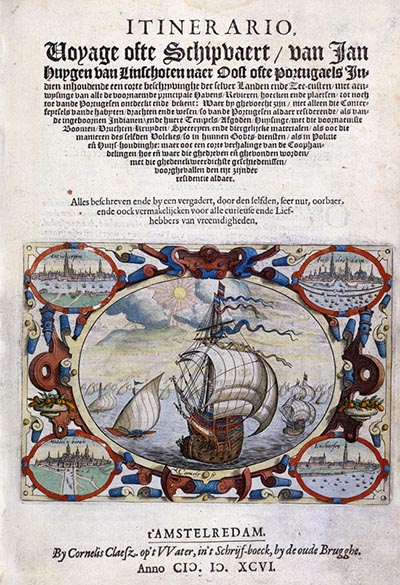 ITINERARIO,
Voyage ofte Schipvaert / van Jan
Huygen van Linschoten naer Oost ofte Portugaels In-
dien inhoudende een corte beschryvinghe der selver Landen ende Zee-custen / met aen-
wysinge van alle de voornaemde principale Havens / Revieren / hoecken ende plaetsen / tot noch
toe vande Portugesen ontdeckt ende bekent: Waer by ghevoecht zijn / niet alleen die Conter-
feytsels vande habyten / drachten ende wesen / so vande Portugesen aldaer residerende / als van-
de ingeboornen Indianen / ende huere Tempels / Afgoden / Huysinge / met die voornaemste
Boomen / Vruchten / Kruyden / Speceryen / ende diergelijcke materialen / als ooc die
manieren des selfden Volckes / so in hunnen Godts-diensten / als in Politie
eñ Huijs-houdinghe: maer ooc een corte verhalinge van de Coophan-
delingen / hoe eñ waer die ghedreven eñ ghevonden worden /
met die ghedenckweerdichste geschiedenissen /
voorghevallen den tijt zijnder
residentie aldaer.
Alles beschreven ende by een vergadert, door den selfden, seer nut, oorbaer,
ende oock vermakelijcken voor alle curieuse ende Lief-
hebbers van vreemdigheden.
Antwerpen
Amsterdam
Middelborch
Enchuysen
t'AMSTELREDAM.
By Cornelis Claesz. op't VVater, in't Schrijf-boeck, by de oude Brugghe.
Anno CIƆ. IƆ. XCVI.